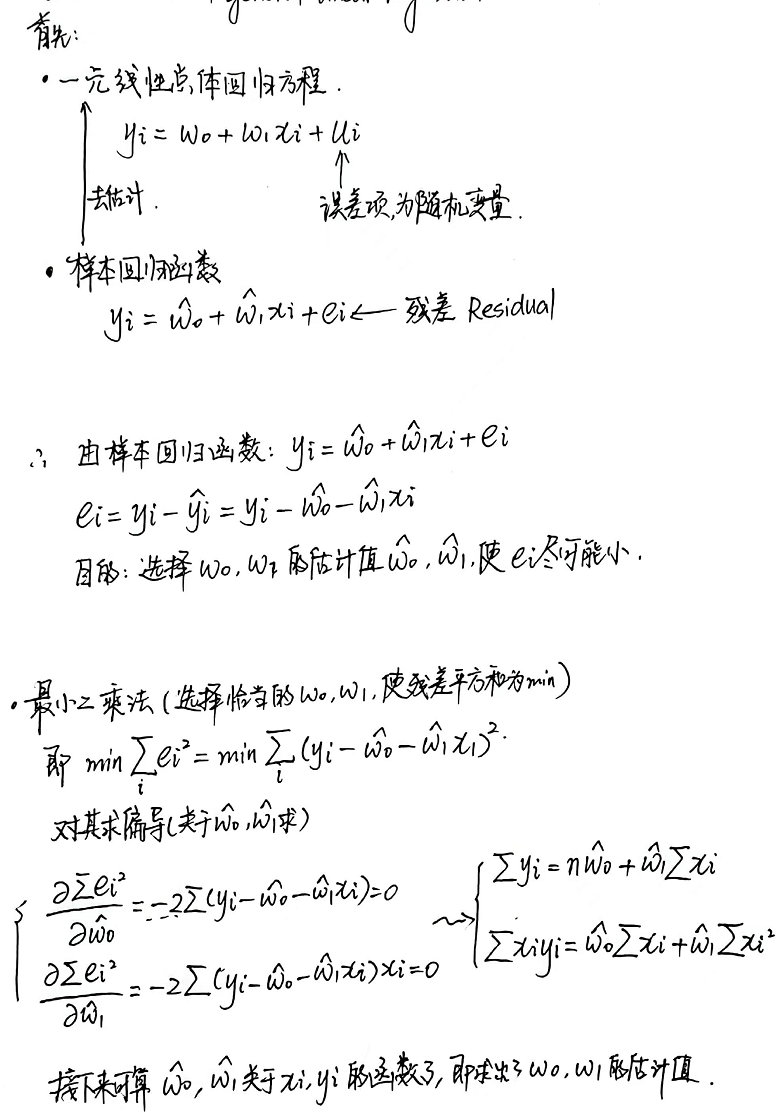 首先:
• 一元线性总体回归方程.
yi = w₀ + w₁xi + ui
去估计. 误差项,为随机变量.
• 样本回归函数
yi = ŵ₀ + ŵ₁xi + ei ← 残差 Residual
∴ 由样本回归函数: yi = ŵ₀ + ŵ₁xi + ei
ei = yi − ŷi = yi − ŵ₀ − ŵ₁xi
目的: 选择 w₀, w₁ 的估计值 ŵ₀, ŵ₁, 使 ei 尽可能小.
• 最小二乘法 (选择恰当的 w₀, w₁, 使残差平方和为min)
即 min ∑i ei² = min ∑i (yi − ŵ₀ − ŵ₁x₁)².
对其求偏导(关于ŵ₀, ŵ₁求)
∂∑ei²/∂ŵ₀ = −2∑(yi − ŵ₀ − ŵ₁xi) = 0 ⇝ ∑yi = nŵ₀ + ŵ₁∑xi
∂∑ei²/∂ŵ₁ = −2∑(yi − ŵ₀ − ŵ₁xi)xi = 0 ∑xiyi = ŵ₀∑xi + ŵ₁∑xi²
接下来可算 ŵ₀, ŵ₁ 关于 xi, yi 的函数了, 即求出了 w₀, w₁ 的估计值.